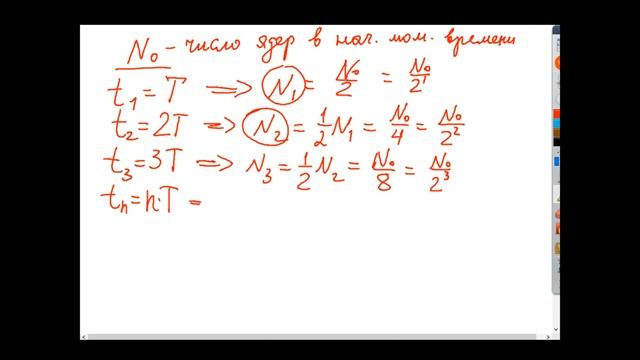 N₀ - число ядер в нач. мом. времени
t₁ = T => N₁ = N₀/2 = N₀/2¹
t₂ = 2T => N₂ = 1/2 N₁ = N₀/4 = N₀/2²
t₃ = 3T => N₃ = 1/2 N₂ = N₀/8 = N₀/2³
tₙ = n·T =